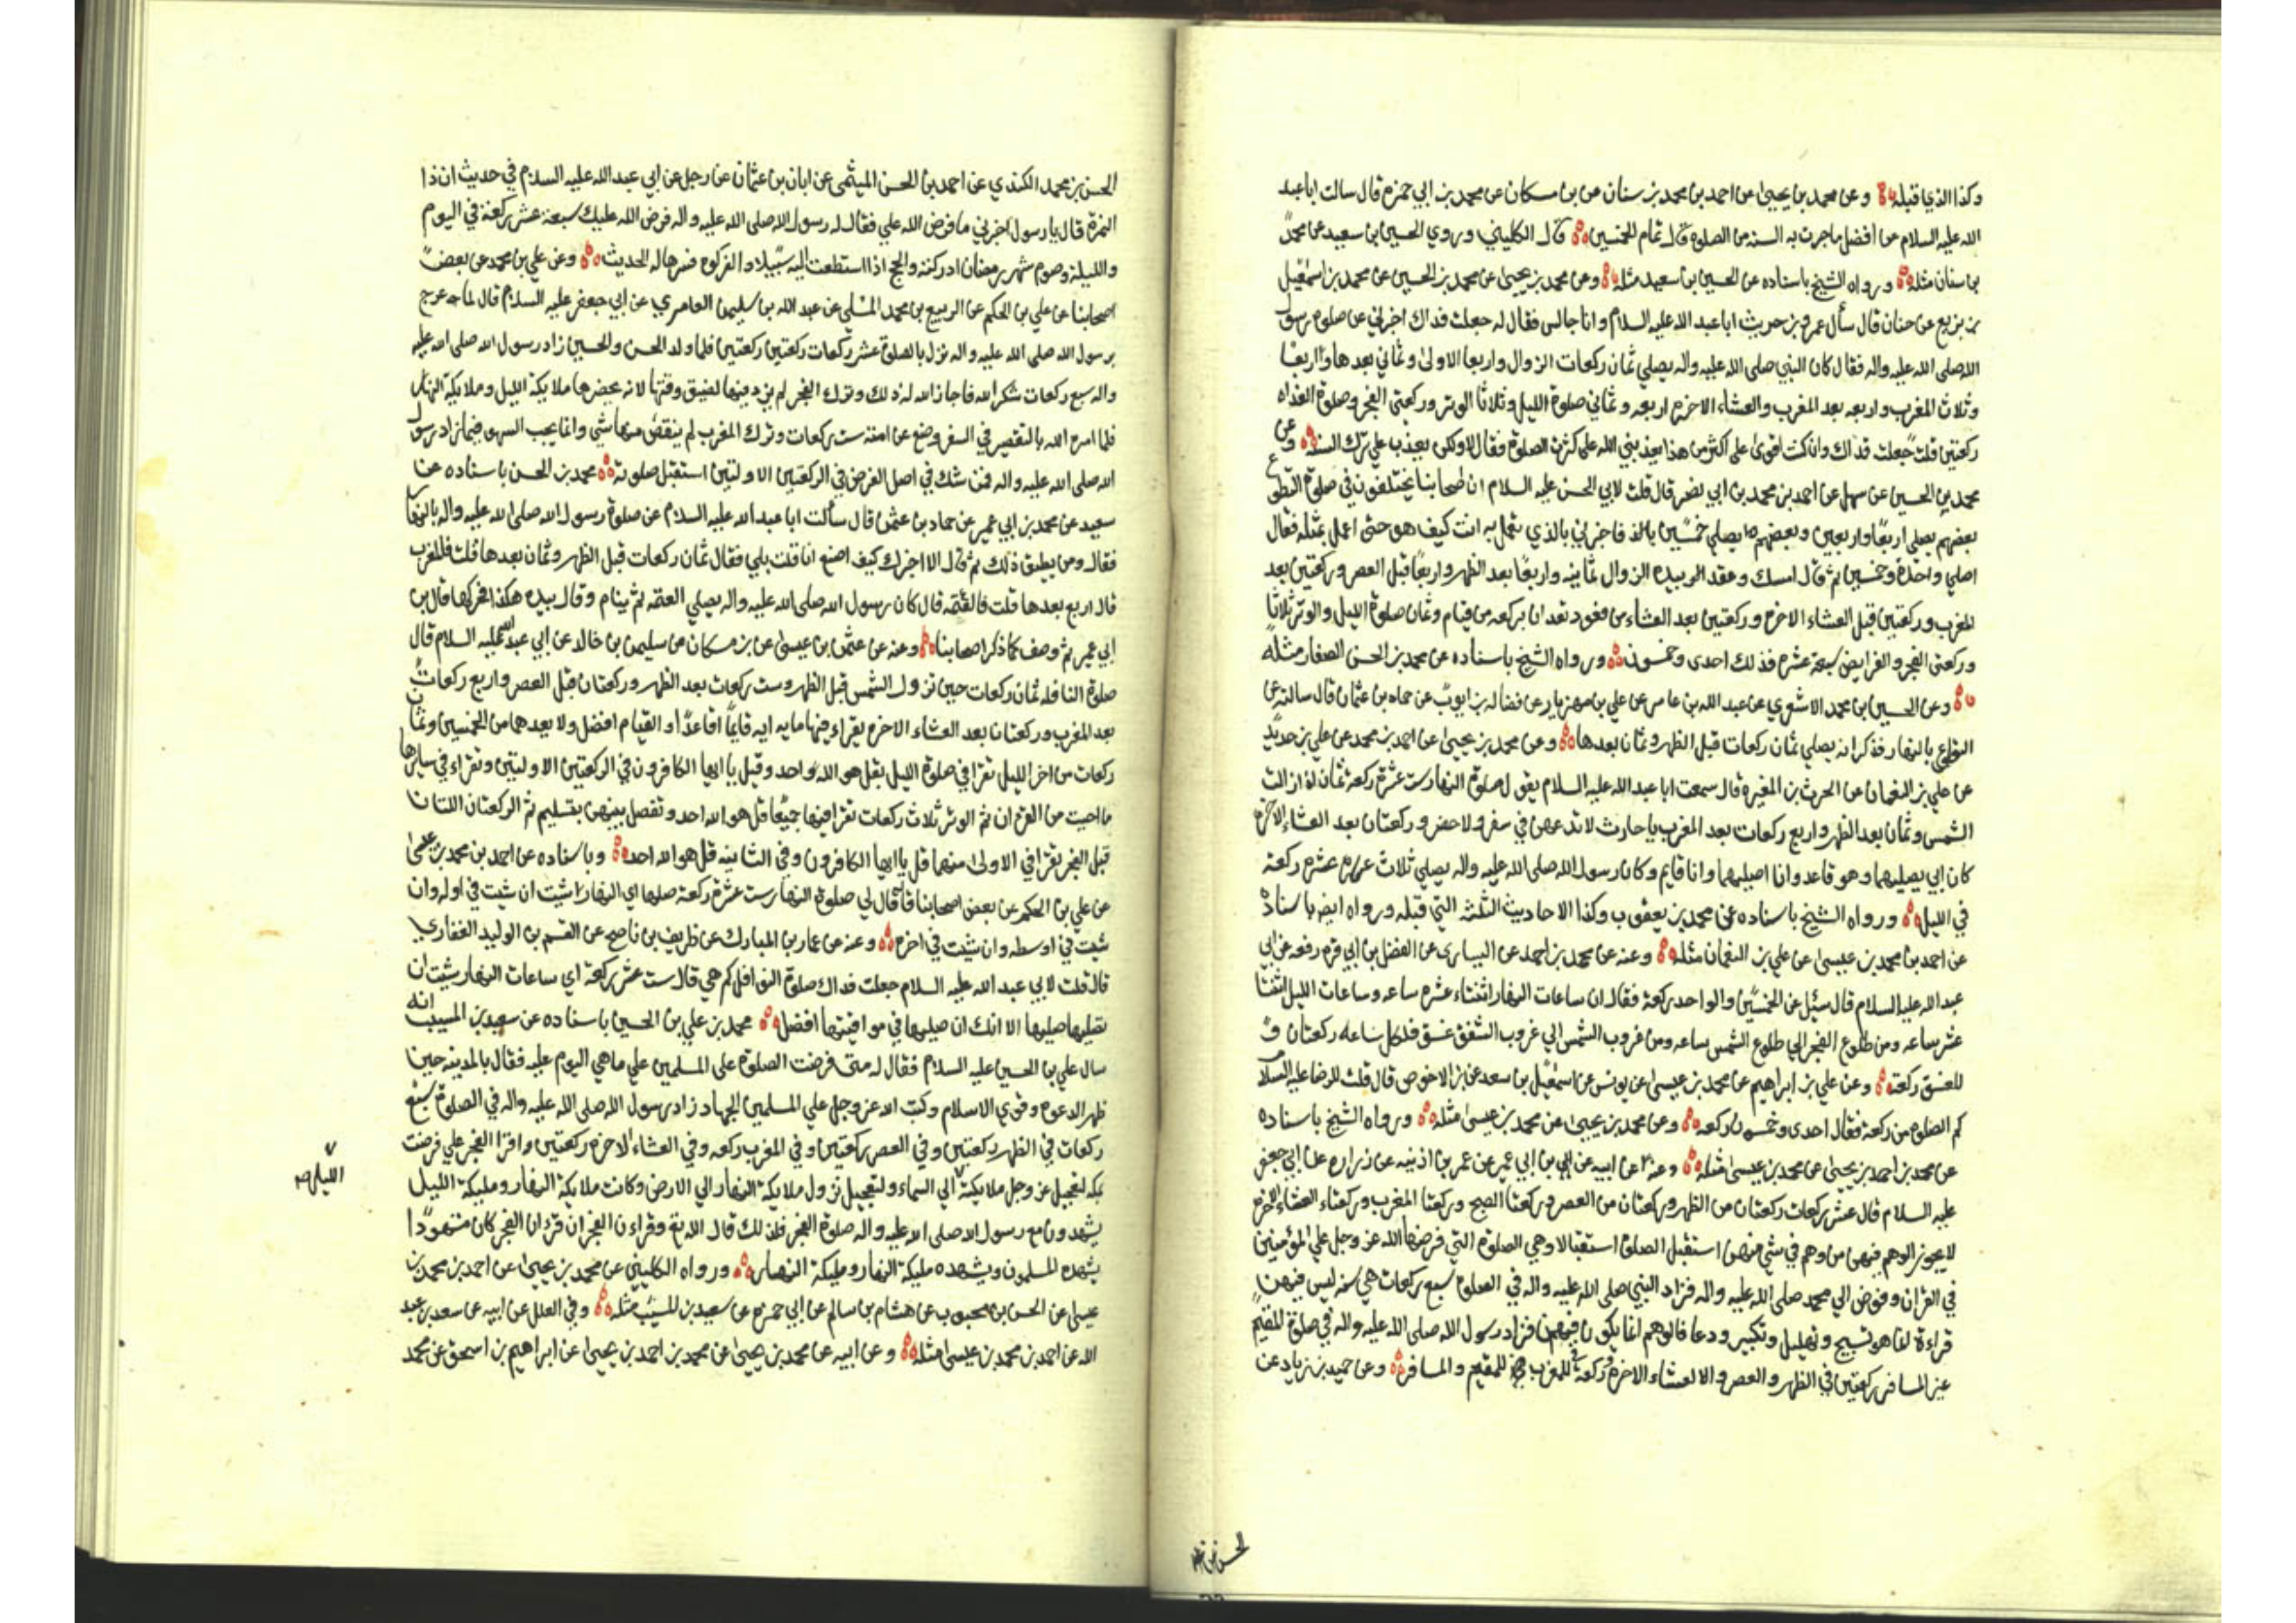 وكذا الذي قبله وعن محمد بن يحيى عن احمد بن محمد بن سنان عن بن مسكان عن محمد بن ابي حمزه قال سالت ابا عبد
الله عليه السلام عن افضل ما جرت به السنه من الصلوة قال تمام الخمسين قال الكليني وروي الحسين بن سعيد عن محمد
بن سنان مثله ورواه الشيخ باسناده عن الحسين بن سعيد مثله وعن محمد بن يحيى عن محمد بن الحسين عن محمد بن اسمعيل
بن بزيع عن حنان قال سأل عمرو بن حريث ابا عبد الله عليه السلام وانا جالس فقال له جعلت فداك اخبرني عن صلوة رسول
الله صلى الله عليه واله فقال كان النبي صلى الله عليه واله يصلي ثمان ركعات الزوال واربعا الاولى وثماني بعدها واربعا
وثلاث المغرب واربعه بعد المغرب والعشاء الاخرة اربعه وثماني صلوة الليل وثلاثا الوتر وركعتي الفجر وصلوة الغداه
ركعتين قلت جعلت فداك وان كنت اقوى على اكثر من هذا يعذبني الله على كثرة الصلوة فقال لا ولكن يعذب على ترك السنه وعن
محمد بن الحسين عن سهل عن احمد بن محمد بن ابي نصر قال قلت لابي الحسن عليه السلام ان اصحابنا يختلفون في صلوة التطوع
بعضهم يصلي اربعا واربعين وبعضهم يصلي خمسين فاخبرني بالذي تعمل به انت كيف هو حتى اعمل بمثله فقال
اصلي واحدة وخمسين ثم قال امسك وعقد بيده الزوال ثمانيه واربعا بعد الظهر واربعا قبل العصر وركعتين بعد
المغرب وركعتين قبل العشاء الاخرة وركعتين بعد العشاء من قعود تعد ان بركعه من قيام وثمان صلوة الليل والوتر ثلاثا
وركعتي الفجر والفرايض سبع عشره فذلك احدى وخمسون ورواه الشيخ باسناده عن محمد بن الحسن الصفار مثله
وعن الحسين بن محمد الاشعري عن عبد الله بن عامر عن علي بن مهزيار عن فضاله بن ايوب عن حماد بن عثمان قال سالته عن
التطوع بالنهار فذكر انه يصلي ثمان ركعات قبل الظهر وثمان بعدها وعن محمد بن يحيى عن احمد بن محمد عن علي بن حديد
عن علي بن النعمان عن الحرث بن المغيره قال سمعت ابا عبد الله عليه السلام يقول صلوة النهار ست عشرة ركعة ثمان اذا زالت
الشمس وثمان بعد الظهر واربع ركعات بعد المغرب يا حارث لا تدعهن في سفر ولا حضر وركعتان بعد العشاء الاخرة
كان ابي يصليهما وهو قاعد وانا اصليهما وانا قايم وكان رسول الله صلى الله عليه واله يصلي ثلاث عشره ركعة
في الليل ورواه الشيخ باسناده عن محمد بن يعقوب وكذا الاحاديث الثلثه التي قبله ورواه ايضا باسناده
عن احمد بن محمد بن عيسى عن علي بن النعمان مثله وعنه عن محمد بن احمد عن السياري عن الفضل بن ابي قره رفعه عن ابي
عبد الله عليه السلام قال سئل عن الخمسين والواحد ركعة فقال ان ساعات النهار اثنتاء عشره ساعه وساعات الليل اثنتا
عشر ساعه ومن طلوع الفجر الي طلوع الشمس ساعه ومن غروب الشمس الي غروب الشفق غسق فلكل ساعه ركعتان و
للغسق ركعة وعن علي بن ابراهيم عن محمد بن عيسى عن يونس عن اسمعيل بن سعد عن بن الاحوص قال قلت للرضا عليه السلام
كم الصلوة من ركعة فقال احدى وخمسون ركعه وعن محمد بن يحيى عن محمد بن عيسى مثله ورواه الشيخ باسناده
عن محمد بن احمد بن يحيى عن محمد بن عيسى مثله وعنه عن ابيه عن بن ابي عمير عن عمر بن اذينه عن زراره عن ابي جعفر
عليه السلام قال عشر ركعات ركعتان من الظهر وركعتان من العصر وركعتا الصبح وركعتا المغرب وركعتاء العشاء الاخرة
لا يجوز الوهم فيهن من وهم في شي منهن استقبل الصلوة استقبالا وهي الصلوة التي فرضها الله عز وجل علي المؤمنين
في القران وفوض الي محمد صلى الله عليه واله فزاد النبي صلى الله عليه واله في الصلوة سبع ركعات هي سنه ليس فيهن
قراءة انما هو تسبيح وتهليل وتكبير ودعا فالوهم انما يكون فيهن فزاد رسول الله صلى الله عليه واله في صلوة المقيم
غير المسافر ركعتين في الظهر والعصر والعشاء الاخرة وركعة في المغرب للمقيم والمسافر وعن حميد بن زياد عن
الحسن بن محمد
الحسن بن محمد الكندي عن احمد بن الحسن الميثمي عن ابان بن عثمان عن رجل عن ابي عبد الله عليه السلام في حديث ان ذا
النمرة قال يا رسول اخبرني ما فرض الله علي فقال له رسول الله صلى الله عليه واله فرض الله عليك سبعة عشر ركعة في اليوم
والليلة وصوم شهر رمضان ادركته والحج اذا استطعت اليه سبيلا والزكوة فسرها له الحديث وعن علي بن محمد عن بعض
اصحابنا عن علي بن الحكم عن الربيع بن محمد المسلي عن عبد الله بن سليمن العامري عن ابي جعفر عليه السلام قال لما عرج
برسول الله صلى الله عليه واله نزل بالصلوة عشر ركعات ركعتين ركعتين فلما ولد الحسن والحسين زاد رسول الله صلى الله عليه
واله سبع ركعات شكرا لله فاجاز الله له ذلك وترك الفجر لم يزد فيها لضيق وقتها لانه يحضرها ملايكة الليل وملايكة النهار
فلما امره الله بالتقصير في السفر وضع عن امته ست ركعات وترك المغرب لم ينقص منها شي وانما يجب السهو فيما زاد رسول
الله صلى الله عليه واله فمن شك في اصل الفرض في الركعتين الاولتين استقبل صلوته محمد بن الحسن باسناده عن
سعيد عن محمد بن ابي عمير عن حماد بن عثمن قال سألت ابا عبد الله عليه السلام عن صلوة رسول الله صلى الله عليه واله بالنهار
فقال ومن يطيق ذلك ثم قال الا اخبرك كيف اصنع انا قلت بلي فقال ثمان ركعات قبل الظهر وثمان بعدها قلت فالمغرب
قال اربع بعدها قلت فالعتمه قال كان رسول الله صلى الله عليه واله يصلي العتمه ثم ينام وقال بيده هكذا فحركها قال بن
ابي عمير ثم وصف كما ذكر اصحابنا وعنه عن عثمن بن عيسى عن بن مسكان عن سليمن بن خالد عن ابي عبد الله عليه السلام قال
صلوة النافله ثمان ركعات حين تزول الشمس قبل الظهر وست ركعات بعد الظهر وركعتان قبل العصر واربع ركعات
بعد المغرب وركعتان بعد العشاء الاخرة يقراء فيهما مايه ايه قايما او قاعدا والقيام افضل ولا يعدهما من الخمسين وثمان
ركعات من اخر الليل تقرا في صلوة الليل بقل هو الله احد وقل يا ايها الكافرون في الركعتين الاولتين وتقراء في سايرها
ما احببت من القران ثم الوتر ثلاث ركعات تقرا فيها جميعا قل هو الله احد وتفصل بينهن بتسليم ثم الركعتان اللتان
قبل الفجر تقرا في الاولى منهما قل يا ايها الكافرون وفي الثانيه قل هو الله احد وباسناده عن احمد بن محمد بن عيسى
عن علي بن الحكم عن بعض اصحابنا قال قال لي صلوة النهار ست عشرة ركعة صلها اي النهار شيت ان شيت في اوله وان
شيت في اوسطه وان شيت في اخره وعنه عن عمار بن المبارك عن ظريف بن ناصح عن القسم بن الوليد الغفاري
قال قلت لابي عبد الله عليه السلام جعلت فداك صلوة النوافل كم هي قال ست عشر ركعة اي ساعات النهار شيت ان
تصليها صليها الا انك ان صليها في مواقيتها افضل محمد بن علي بن الحسين باسناده عن سعيد بن المسيب انه
سال علي بن الحسين عليه السلام فقال له متى فرضت الصلوة على المسلمين علي ما هي اليوم عليه فقال بالمدينه حين
ظهر الدعوة وقوي الاسلام وكتب الله عز وجل علي المسلمين الجهاد زاد رسول الله صلى الله عليه واله في الصلوة سبع
ركعات في الظهر ركعتين وفي العصر ركعتين وفي المغرب ركعه وفي العشاء الاخرة ركعتين واقرا الفجر علي فرضت
بمكه لتعجيل عز وجل ملايكة الي السماء ولتعجيل نزول ملايكة النهار الي الارض وكانت ملايكة النهار ومليكة الليل
الليل صح
يشهدون مع رسول الله صلى الله عليه واله صلوة الفجر فلذلك قال الله تع وقراءن الفجر ان قران الفجر كان مشهودا
يشهده المسلمون ويشهده مليكة النهار ومليكة النهار ورواه الكليني عن محمد بن يحيى عن احمد بن محمد بن
عيسى عن الحسن بن محبوب عن هشام بن سالم عن ابي حمزه عن سعيد بن المسيب مثله وفي العلل عن ابيه عن سعد بن عبد
الله عن احمد بن محمد بن عيسى مثله وعن ابيه عن محمد بن يحيى عن محمد بن احمد بن يحيى عن ابراهيم بن اسحق عن محمد